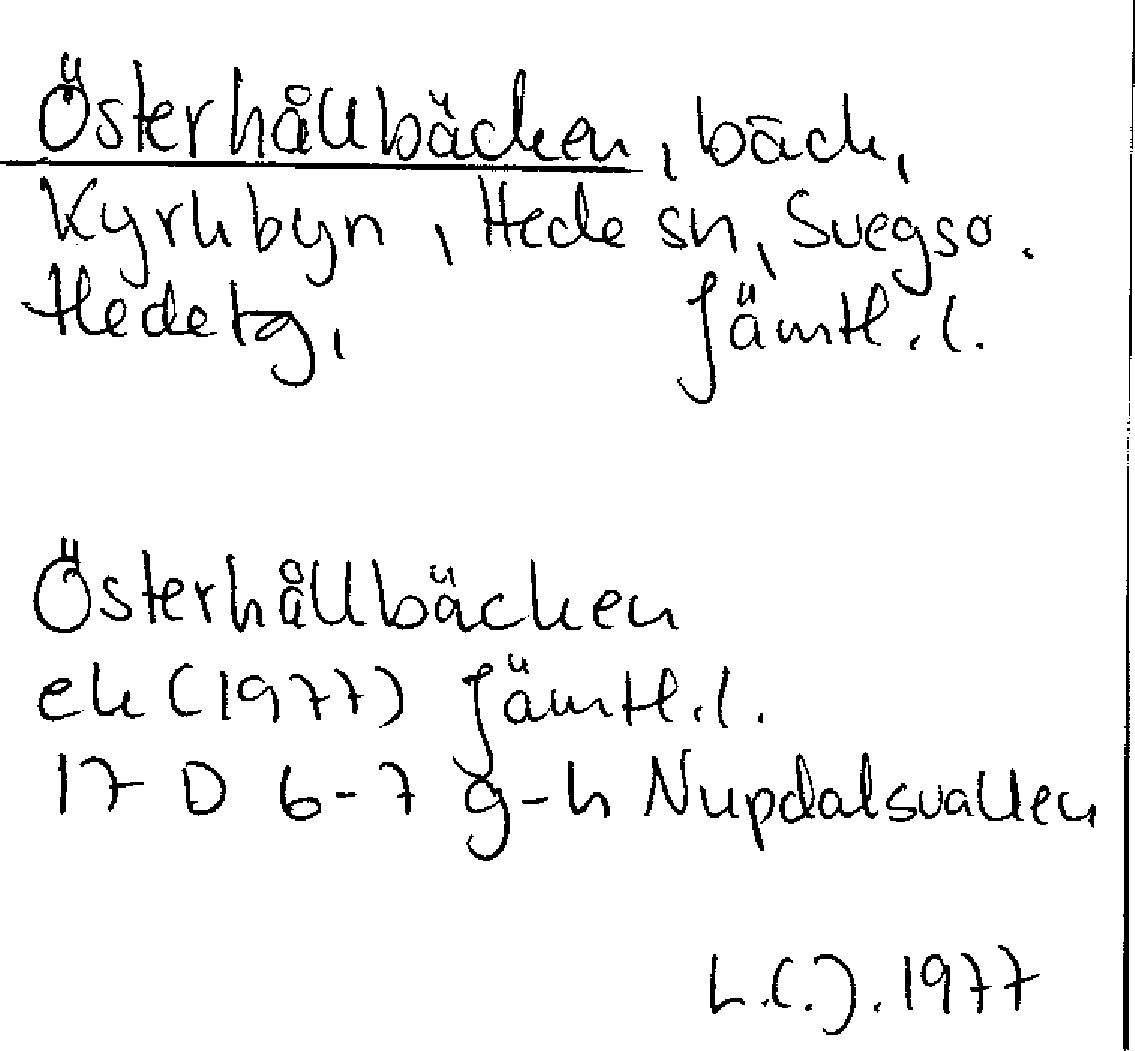 Österhållbäcken, bäck,
Kyrkbyn, Hede sn, Svegs o.
Hede tg, Jämtl. l.
Österhållbäcken
ek (1977) Jämtl. l.
17 D 6-7 g-h Nupdalsvallen
L.C.J. 1977